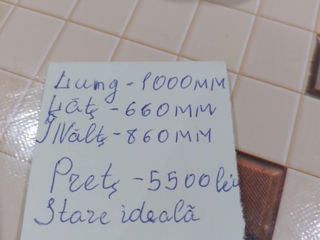 Lung - 1000мм
Lăţ - 660мм
Înălţ - 860мм
Preţ - 5500 lei
Stare ideală